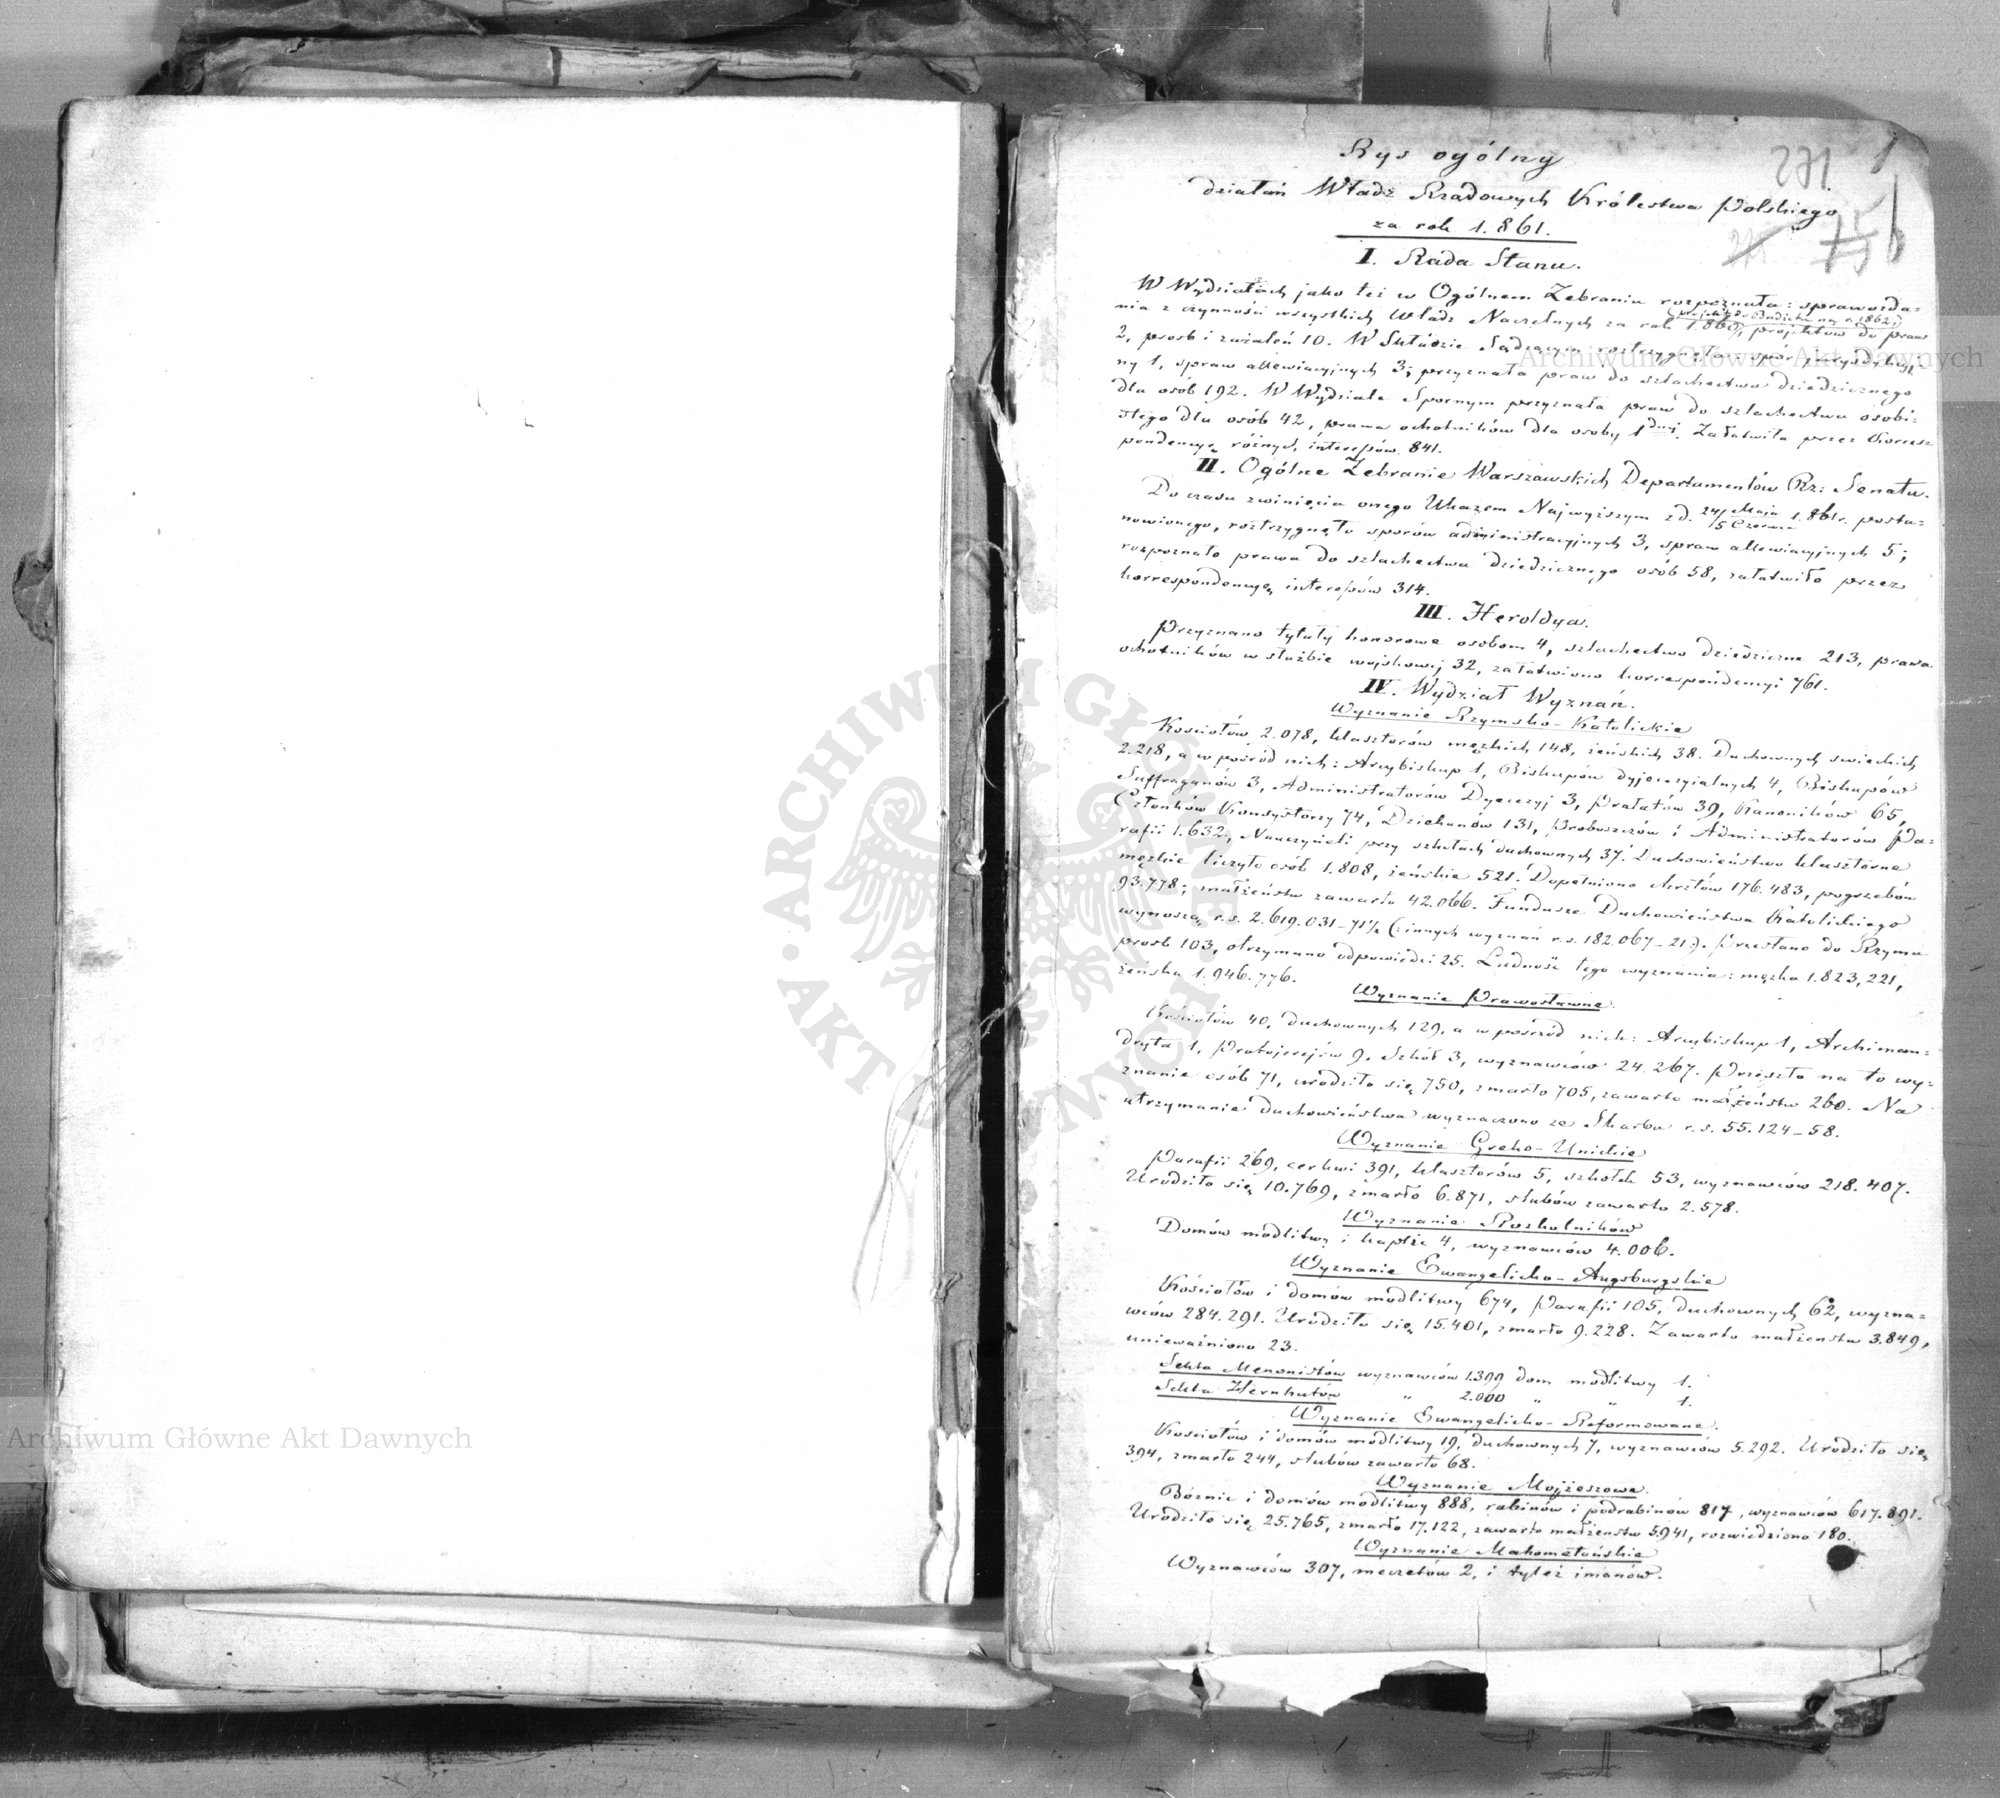 271 1
Rys ogólny
działań Władz Rządowych Królestwa Polskiego
za rok 1.861.
75
I. Rada Stanu.
W Wydziałach jako też w Ogólnem Zebraniu rozpoznała: sprawozda-
nia z czynności wszystkich Władz Naczelnych za rok 1.860, projektów do praw
2, prosb i zażaleń 10. W Składzie Sądzącym rozstrzygnęła: spor jurysdykcyj-
ny 1, spraw allewiacyjnych 3; przyznała praw do szlachectwa dziedzicznego
dla osób 192. W Wydziale Spornym przyznała praw do szlachectwa osobi-
stego dla osób 42, prawa ochotników dla osoby 1dnej. Załatwiła przez Korres-
pondencyę różnych interesów 841.
II. Ogólne Zebranie Warszawskich Departamentów Rz: Senatu.
Do czasu zwinięcia onego Ukazem Najwyższym z d. 24 Maja / 5 Czerwca 1.861 r. posta-
nowionego, roztrzygnęło sporów administracyjnych 3, spraw allewiacyjnych 5;
rozpoznało prawa do szlachectwa dziedzicznego osób 58, załatwiło przez
korrespondencyę interesów 314.
III. Heroldya.
Przyznano tytuły honorowe osobom 4, szlachectwo dziedziczne 213, prawa
ochotników w służbie wojskowej 32, załatwiono korrespondencyi 761.
IV. Wydział Wyznań.
Wyznanie Rzymsko-Katolickie
Kościołów 2.078, klasztorów męzkich 148, żeńskich 38. Duchownych swieckich
2.218, a w pośród nich: Arcybiskup 1, Biskupów dyjecezyialnych 4, Biskupów
Suffraganów 3, Administratorów Dyecezyj 3, Prałatów 39, Kanoników 65,
Członków Konsystorzy 74, Dziekanów 131, Proboszczów i Administratorów Pa-
rafii 1.632, Nauczycieli przy szkołach duchownych 37. Duchowieństwo klasztorne
męzkie liczyło osób 1.808, żeńskie 521. Dopełniono chrztów 176.483, pogrzebów
93.778; małżeństw zawarto 42.066. Fundusze Duchowieństwa Katolickiego
wynoszą r.s. 2.619.031-71½ (z innych wyznań r.s. 182.067-21). Przesłano do Rzymu
prosb 103, otrzymano odpowiedzi 25. Ludność tego wyznania: męzka 1.823,221,
żeńska 1.946.776.
Wyznanie Prawosławne.
Kościołów 40, duchownych 129, a w pośród nich: Arcybiskup 1, Archiman-
dryta 1, Protojerejów 9. Szkół 3, wyznawców 24.267. Przeszło na to wy-
znanie osób 71, urodziło się 750, zmarło 705, zawarto małżeństw 260. Na
utrzymanie duchowieństwa wyznaczono ze Skarbu r.s. 55.124-58.
Wyznanie Greko-Unickie
Parafii 269, cerkwi 391, klasztorów 5, szkółek 53, wyznawców 218.407.
Urodziło się 10.769, zmarło 6.871, slubów zawarto 2.578.
Wyznanie Rozkolników
Domów modlitwy i kaplic 4, wyznawców 4.006.
Wyznanie Ewangelicko-Augsburgskie
Kościołów i domów modlitwy 674, Parafii 105, duchownych 62, wyzna-
wców 284.291. Urodziło się 15.401, zmarło 9.228. Zawarto małżenstw 3.849,
unieważniono 23.
Sekta Menonistów wyznawców 1.399 dom modlitwy 1.
Sekta Hernhutów " 2.000 " " 1.
Wyznanie Ewangelicko-Reformowane.
Kościołów i domów modlitwy 19, duchownych 7, wyznawców 5.292. Urodziło się
394, zmarło 244, slubów zawarto 68.
Wyznanie Mojżeszowe.
Bóznic i domów modlitwy 888, rabinów i podrabinów 817, wyznawców 617.891.
Urodziło się 25.765, zmarło 17.122, zawarto małżenstw 5.941, rozwiedziono 180.
Wyznanie Mahometańskie
Wyznawców 307, meczetów 2, i tyleż imanów.
Archiwum Główne Akt Dawnych
Archiwum Główne Akt Dawnych
ARCHIWUM GŁÓWNE · AKT DAWNYCH ·